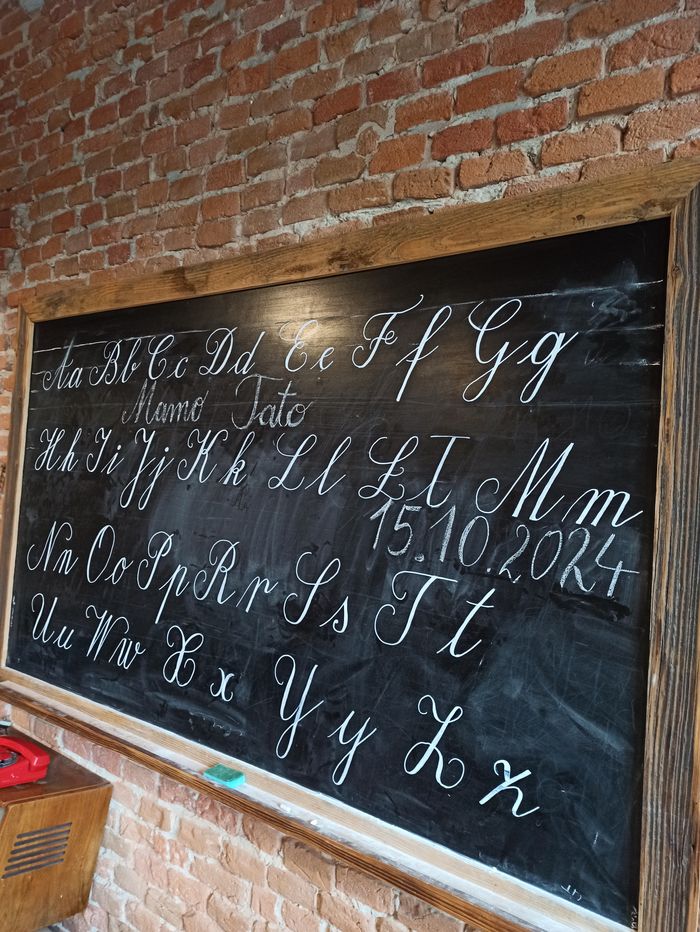 Aa Bb Cc Dd Ee Ff Gg
Mamo Tato
Hh Ii Jj Kk Ll Łł Mm
15.10.2024
Nn Oo Pp Rr Ss Tt
Uu Ww Xx Yy Zz